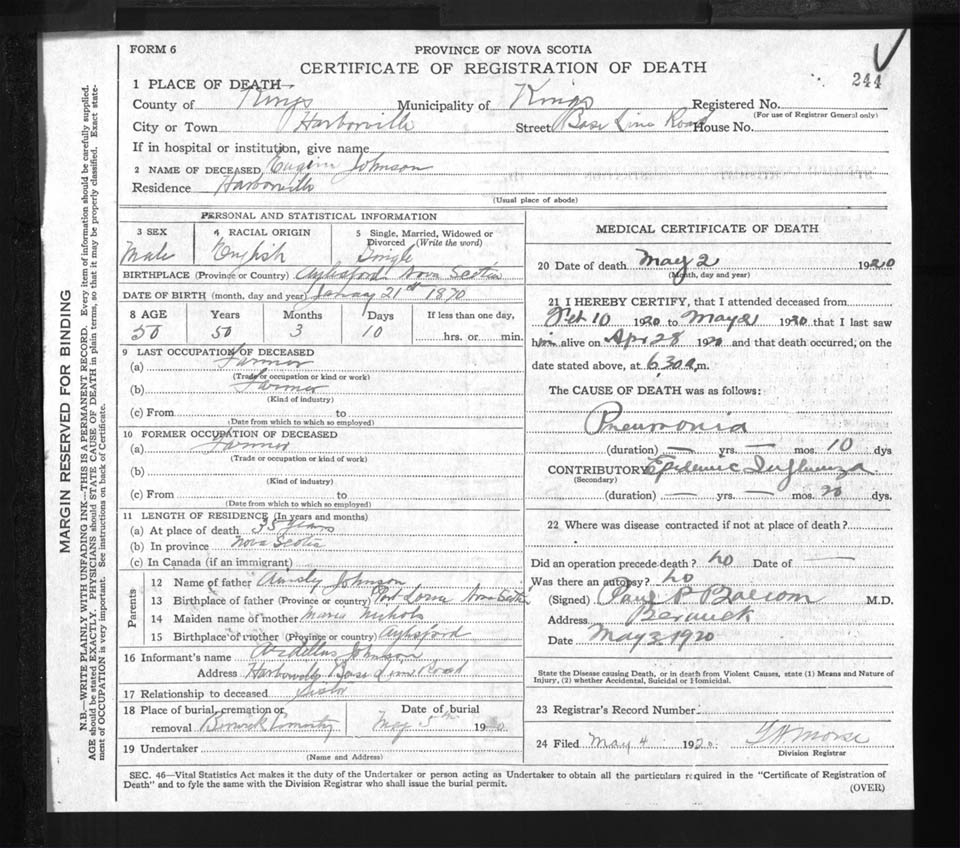 FORM 6
PROVINCE OF NOVA SCOTIA
CERTIFICATE OF REGISTRATION OF DEATH
244
1 PLACE OF DEATH
County of Kings Municipality of Kings Registered No.
(For use of Registrar General only)
City or Town Harborville Street Base Line Road House No.
If in hospital or institution, give name
2 NAME OF DECEASED Johnson
Residence Harborville
(Usual place of abode)
PERSONAL AND STATISTICAL INFORMATION
3 SEX 4 RACIAL ORIGIN 5 Single, Married, Widowed or Divorced (Write the word)
Male English Single
BIRTHPLACE (Province or Country) Aylesford Nova Scotia
DATE OF BIRTH (month, day and year) 21st 1870
8 AGE Years Months Days If less than one day,
50 50 3 10 hrs. or min.
9 LAST OCCUPATION OF DECEASED
(a) Farmer
(Trade or occupation or kind or work)
(b) Farmer
(Kind of industry)
(c) From to
(Date from which to which so employed)
10 FORMER OCCUPATION OF DECEASED
(a) Farmer
(Trade or occupation or kind of work)
(b)
(Kind of industry)
(c) From to
(Date from which to which so employed)
11 LENGTH OF RESIDENCE (In years and months)
(a) At place of death 35 years
(b) In province Nova Scotia
(c) In Canada (if an immigrant)
Parents
12 Name of father Johnson
13 Birthplace of father (Province or country) Port Lorne Nova Scotia
14 Maiden name of mother Maria Nichols
15 Birthplace of mother (Province or country) Aylesford
16 Informant's name Johnson
Address Harborville Base Line Road
17 Relationship to deceased Sister
18 Place of burial, cremation or removal Berwick Cemetery
Date of burial May 5th 1920
19 Undertaker
(Name and Address)
MEDICAL CERTIFICATE OF DEATH
20 Date of death May 2 1920
(Month, day and year)
21 I HEREBY CERTIFY, that I attended deceased from
Feb 10 1920 to May 2 1920 that I last saw
him alive on Apr 28 1920 and that death occurred, on the
date stated above, at 6.30 a.m.
The CAUSE OF DEATH was as follows:
Pneumonia
(duration) — yrs. — mos. 10 dys
CONTRIBUTORY Epidemic Influenza
(Secondary)
(duration) — yrs. — mos. 20 dys.
22 Where was disease contracted if not at place of death?
Did an operation precede death? no Date of —
Was there an autopsy? no
(Signed) Paul P Balcom M.D.
Address Berwick
Date May 3 1920
State the Disease causing Death, or in death from Violent Causes, state (1) Means and Nature of
Injury, (2) whether Accidental, Suicidal or Homicidal.
23 Registrar's Record Number
24 Filed May 4 1920 Morse
Division Registrar
SEC. 46—Vital Statistics Act makes it the duty of the Undertaker or person acting as Undertaker to obtain all the particulars required in the "Certificate of Registration of
Death" and to fyle the same with the Division Registrar who shall issue the burial permit.
(OVER)
MARGIN RESERVED FOR BINDING
N.B.—WRITE PLAINLY WITH UNFADING INK—THIS IS A PERMANENT RECORD. Every item of information should be carefully supplied.
AGE should be stated EXACTLY. PHYSICIANS should STATE CAUSE OF DEATH in plain terms, so that it may be properly classified. Exact state-
ment of OCCUPATION is very important. See instructions on back of Certificate.